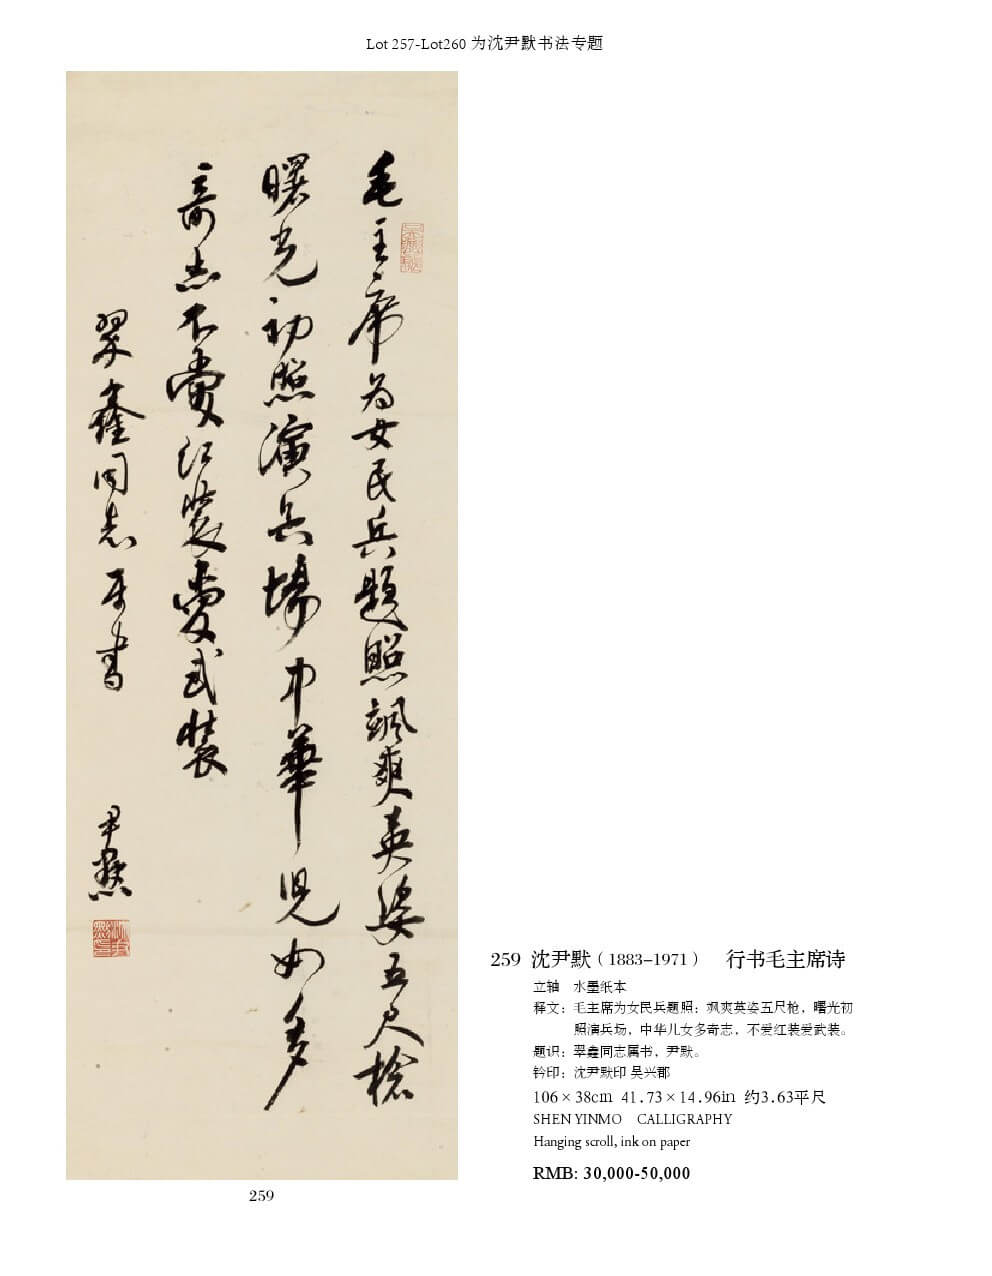 Lot 257-Lot260 为沈尹默书法专题
毛主席为女民兵題照颯爽英姿五尺槍
曙光初照演兵場中華兒女多
奇志不愛红裝愛武裝
翠鑫同志属書
尹默
259
259 沈尹默（1883–1971） 行书毛主席诗
立轴 水墨纸本
释文：毛主席为女民兵题照：飒爽英姿五尺枪，曙光初
照演兵场，中华儿女多奇志，不爱红装爱武装。
题识：翠鑫同志属书，尹默。
钤印：沈尹默印 吴兴郡
106×38cm 41.73×14.96in 约3.63平尺
SHEN YINMO CALLIGRAPHY
Hanging scroll, ink on paper
RMB: 30,000-50,000